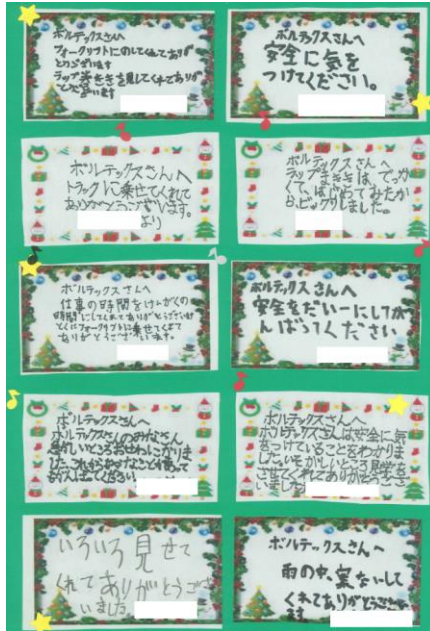 ボルテックスさんへ
フォークリフトにのしてくれてありが
とうございます
ラップ巻きを見してくれてありが
とうございます
ボルテックスさんへ
安全に気を
つけてください。
ボルテックスさんへ
トラックに乗せてくれて
ありがとうございます。
より
ボルテックスさんへ
ラップまきは、でっか
くて、はじめてみたか
ら、ビックリしました。
ボルテックスさんへ
仕事の時間をけんがくの
時間にしてくれてありがとうございます
とくにフォークリフトに乗せてくれて
ありがとうございます。
ボルテックスさんへ
安全をだい一にしてが
んばってください
ボルテックスさんへ
ボルテックスさんのみなさん
忙しいところおせわになりま
した。これからも
がんばってください
ボルテックスさんへ
ボルテックスさんは安全に気
をつけていることをわかりま
した。いそがしいところ見学を
させてくれてありがとうござ
いました
いろいろ見せて
くれてありがとうござ
いました
ボルテックスさんへ
雨の中、案ないして
くれてありがとうござい
ます